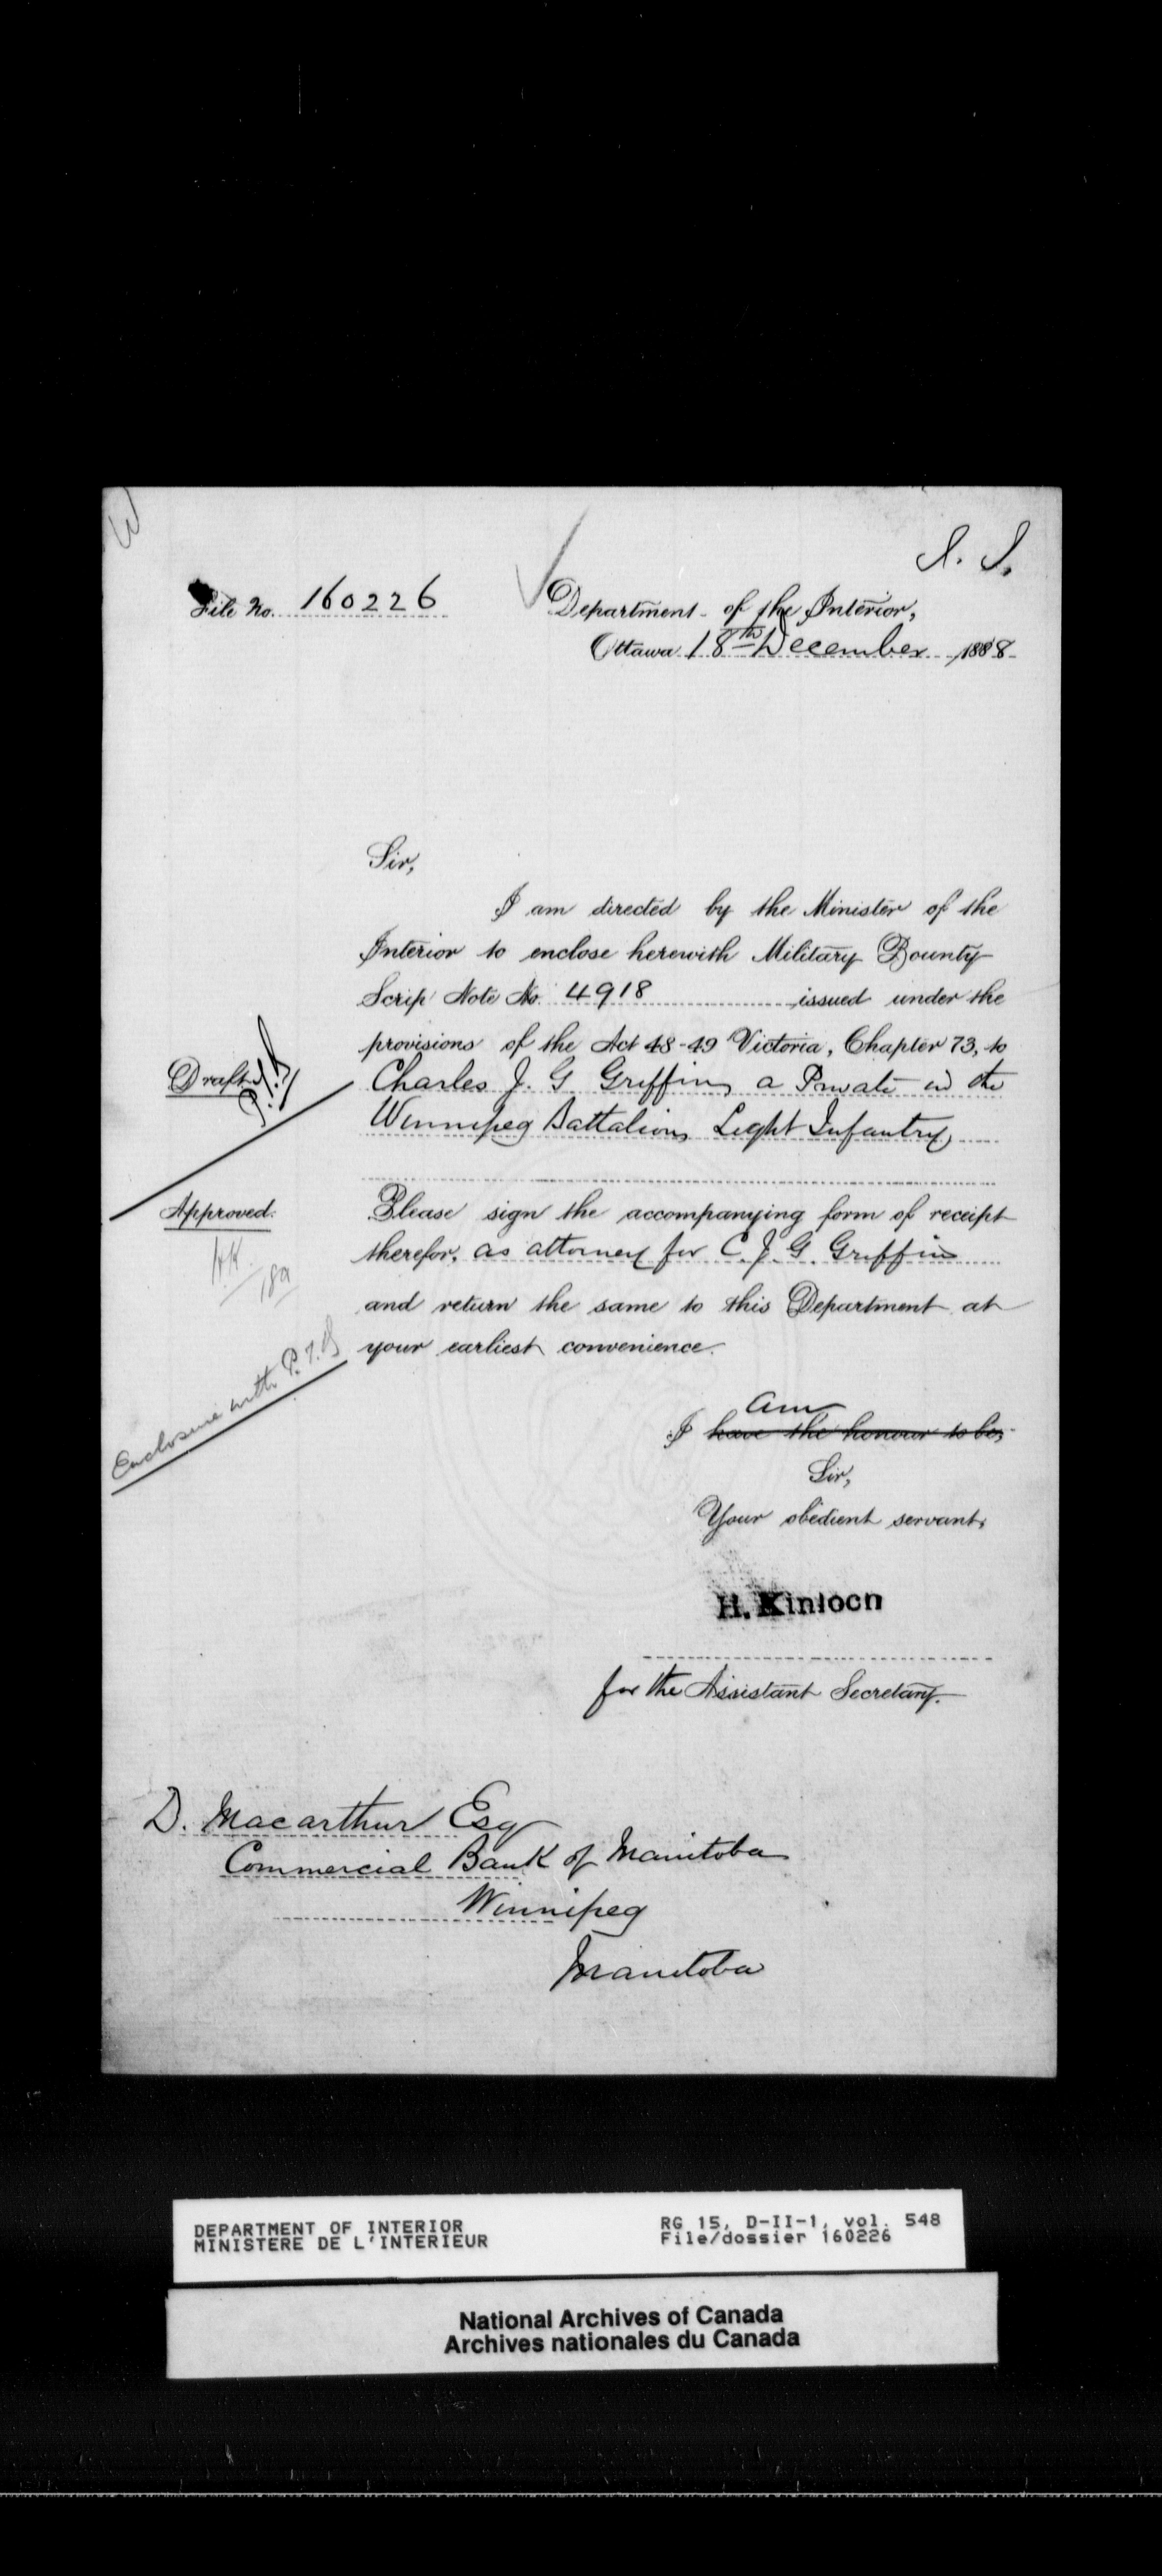 File No. 160226
Department of the Interior,
Ottawa 18th December 1888
Sir,
I am directed by the Minister of the
Interior to enclose herewith Military Bounty
Scrip Note No. 4918 issued under the
provisions of the Act 48-49 Victoria, Chapter 73, to
Charles J. G Griffin, a Private in the
Winnipeg Battalion, Light Infantry
Draft
Approved.
Please sign the accompanying form of receipt
therefor, as attorney for C. J. G. Griffin
and return the same to this Department at
your earliest convenience.
Enclosure with
am
I have the honour to be,
Sir,
Your obedient servant,
H. Kinloch
for the Assistant Secretary.
D. Macarthur Esq
Commercial Bank of Manitoba
Winnipeg
Manitoba
DEPARTMENT OF INTERIOR
MINISTERE DE L'INTERIEUR
RG 15, D-II-1, vol. 548
File/dossier 160226
National Archives of Canada
Archives nationales du Canada